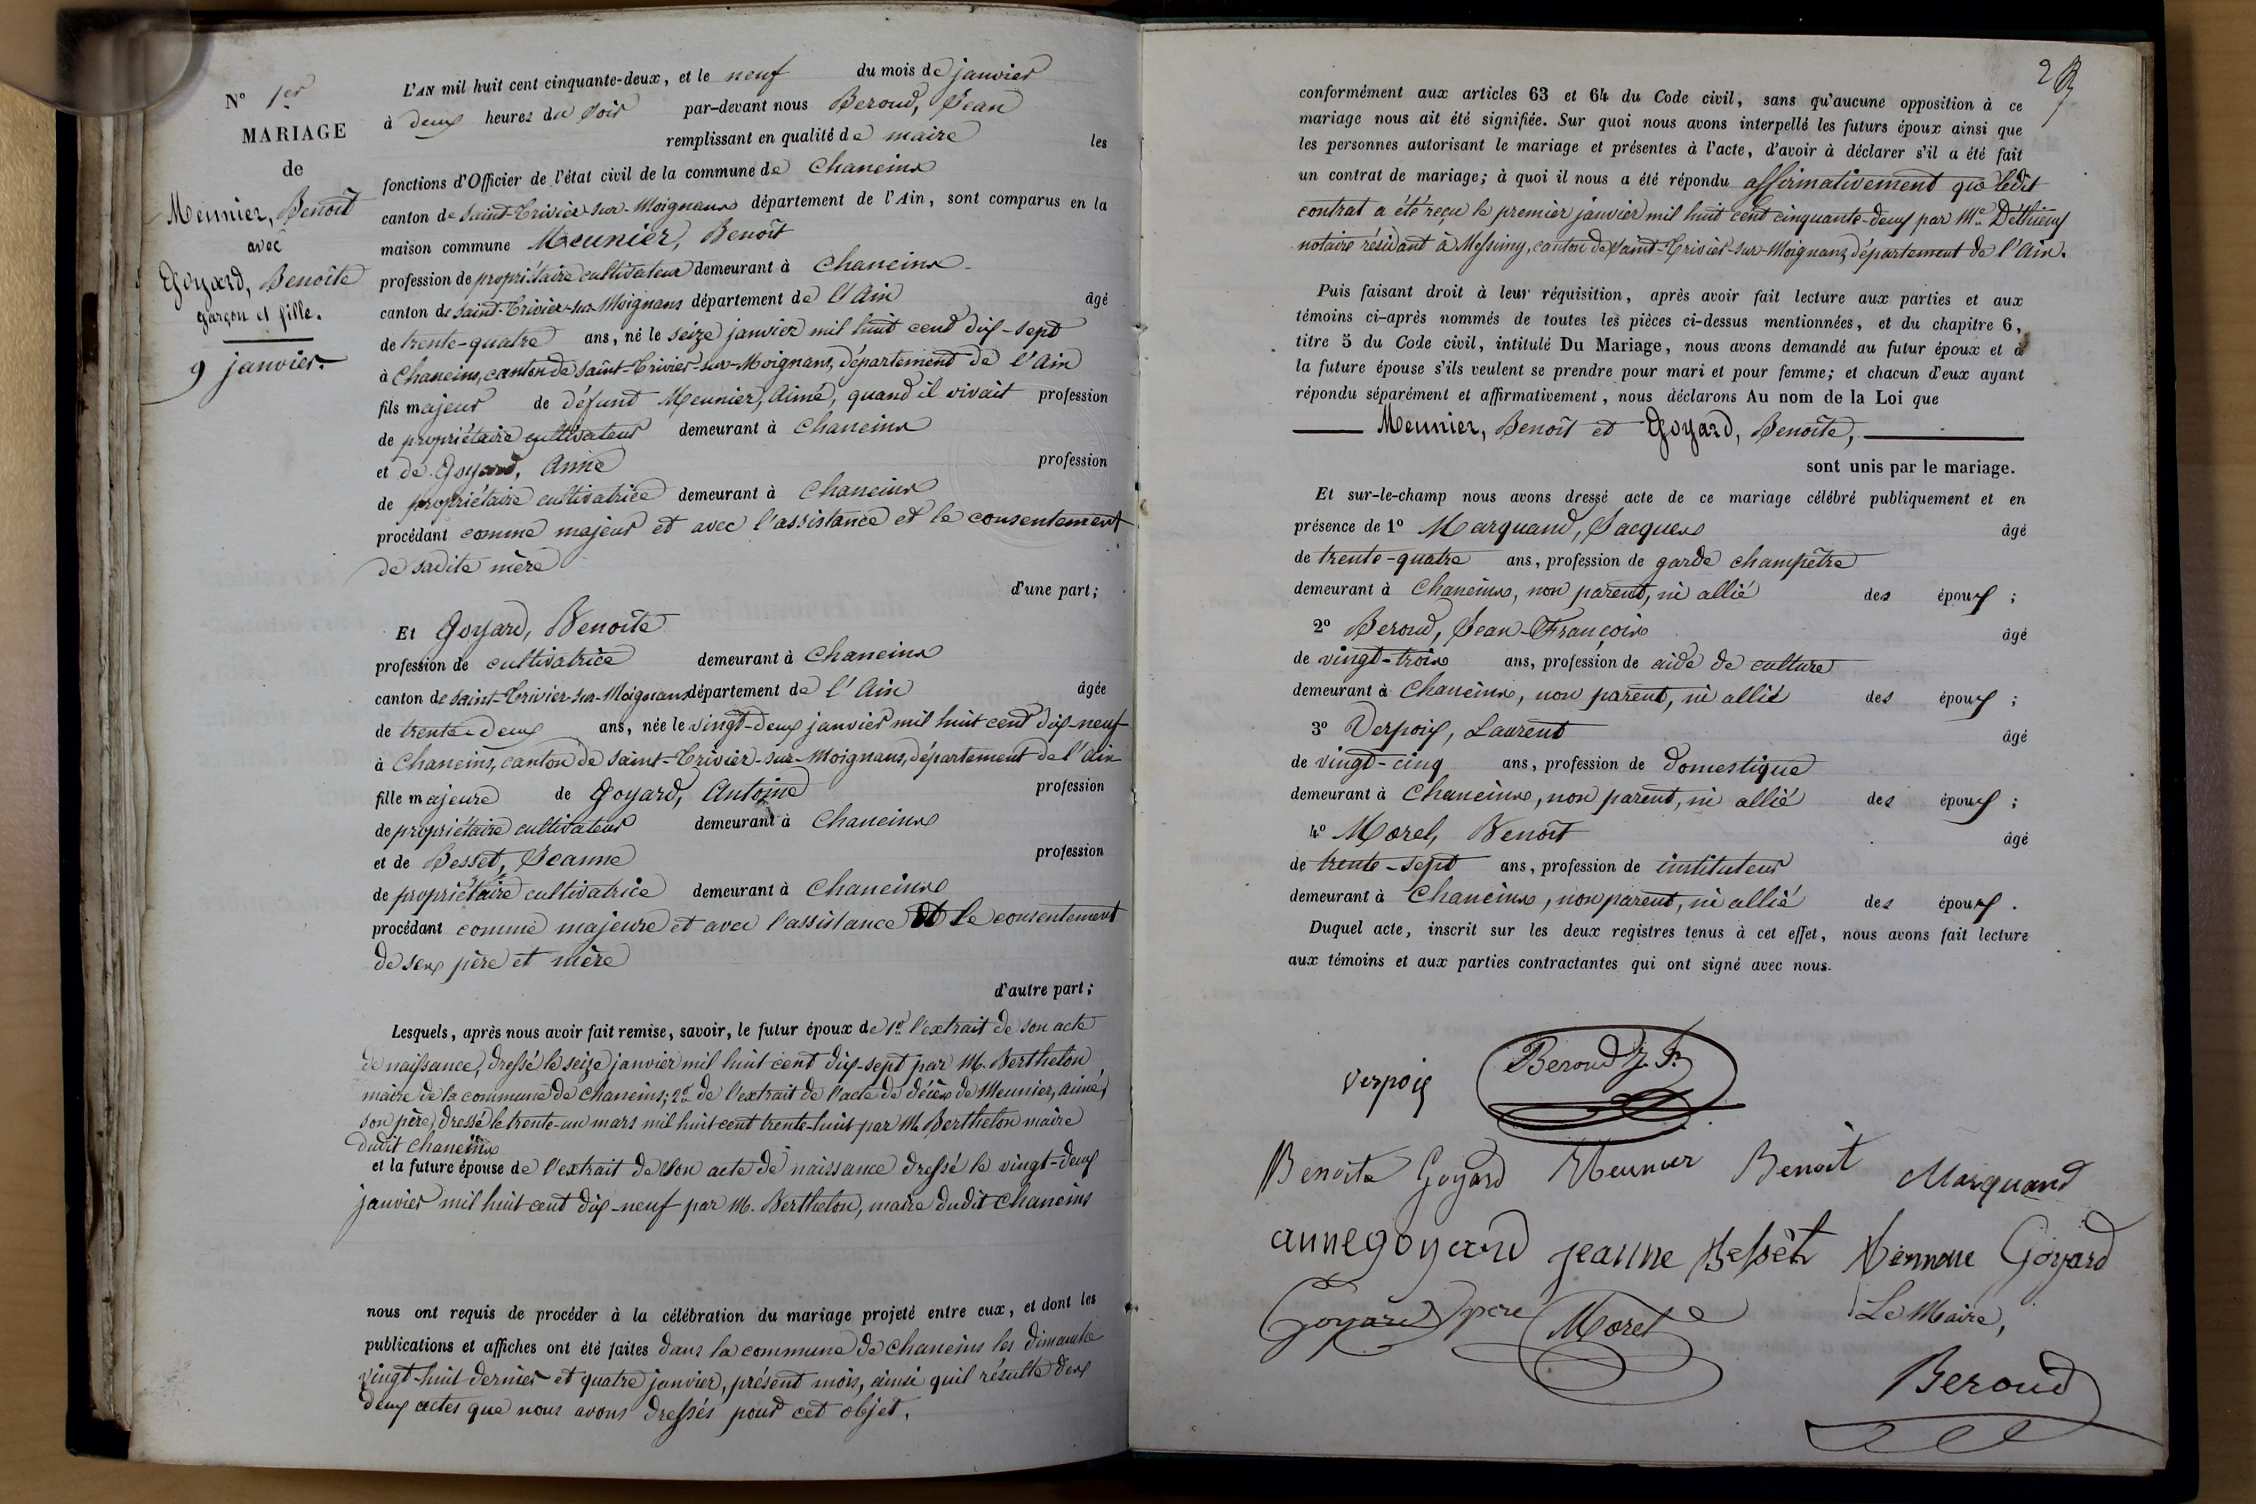 N° 1er
MARIAGE
de
Meunier, Benoît
avec
Goyard, Benoîte
garçon et fille.
9 janvier.
L'AN mil huit cent cinquante-deux, et le neuf du mois de janvier
à deux heures du soir par-devant nous Beroud, Jean
remplissant en qualité de maire les
fonctions d'Officier de l'état civil de la commune de Chaneins
canton de saint-Trivier-sur-Moignans département de l'Ain, sont comparus en la
maison commune Meunier, Benoît
profession de propriétaire cultivateur demeurant à Chaneins
canton de saint-Trivier-sur-Moignans département de l'Ain âgé
de trente-quatre ans, né le seize janvier mil huit cent dix-sept
à Chaneins, canton de saint-Trivier-sur-Moignans, département de l'Ain
fils majeur de défunt Meunier, Aimé, quand il vivait profession
de propriétaire cultivateur demeurant à Chaneins
et de Goyard, Anne profession
de propriétaire cultivatrice demeurant à Chaneins
procédant comme majeur et avec l'assistance et le consentement
de sadite mère
d'une part;
Et Goyard, Benoîte
profession de cultivatrice demeurant à Chaneins
canton de saint-Trivier-sur-Moignans département de l'Ain âgée
de trente-deux ans, née le vingt-deux janvier mil huit cent dix-neuf
à Chaneins, canton de saint-Trivier-sur-Moignans, département de l'Ain
fille majeure de Goyard, Antoine profession
de propriétaire cultivateur demeurant à Chaneins
et de Besset, Jeanne profession
de propriétaire cultivatrice demeurant à Chaneins
procédant comme majeure et avec l'assistance et le consentement
de ses père et mère
d'autre part;
Lesquels, après nous avoir fait remise, savoir, le futur époux de 1° l'extrait de son acte
de naissance, dressé le seize janvier mil huit cent dix-sept par M. Berthelon
maire de la commune de Chaneins; 2° de l'extrait de l'acte de décès de Meunier, Aimé,
son père, dressé le trente-un mars mil huit cent trente-huit par M. Berthelon maire
dudit Chaneins
et la future épouse de l'extrait de son acte de naissance dressé le vingt-deux
janvier mil huit cent dix-neuf par M. Berthelon, maire dudit Chaneins
nous ont requis de procéder à la célébration du mariage projeté entre eux, et dont les
publications et affiches ont été faites dans la commune de Chaneins les dimanche
vingt-huit dernier et quatre janvier, présent mois, ainsi qu'il résulte des
deux actes que nous avons dressés pour cet objet.
2
conformément aux articles 63 et 64 du Code civil, sans qu'aucune opposition à ce
mariage nous ait été signifiée. Sur quoi nous avons interpellé les futurs époux ainsi que
les personnes autorisant le mariage et présentes à l'acte, d'avoir à déclarer s'il a été fait
un contrat de mariage; à quoi il nous a été répondu affirmativement que ledit
contrat a été reçu le premier janvier mil huit cent cinquante-deux par Me Déthieux
notaire résidant à Messimy, canton de saint-Trivier-sur-Moignans, département de l'Ain.
Puis faisant droit à leur réquisition, après avoir fait lecture aux parties et aux
témoins ci-après nommés de toutes les pièces ci-dessus mentionnées, et du chapitre 6,
titre 5 du Code civil, intitulé Du Mariage, nous avons demandé au futur époux et à
la future épouse s'ils veulent se prendre pour mari et pour femme; et chacun d'eux ayant
répondu séparément et affirmativement, nous déclarons Au nom de la Loi que
Meunier, Benoît et Goyard, Benoîte,
sont unis par le mariage.
Et sur-le-champ nous avons dressé acte de ce mariage célébré publiquement et en
présence de 1° Marquand, Jacques âgé
de trente-quatre ans, profession de garde champêtre
demeurant à Chaneins, non parent, ni allié des époux;
2° Beroud, Jean-François âgé
de vingt-trois ans, profession de aide de culture
demeurant à Chaneins, non parent, ni allié des époux;
3° Verpoix, Laurent âgé
de vingt-cinq ans, profession de domestique
demeurant à Chaneins, non parent, ni allié des époux;
4° Morel, Benoît âgé
de trente-sept ans, profession de instituteur
demeurant à Chaneins, non parent, ni allié des époux.
Duquel acte, inscrit sur les deux registres tenus à cet effet, nous avons fait lecture
aux témoins et aux parties contractantes qui ont signé avec nous.
Verpoix Beroud J. F.
Benoîte Goyard Meunier Benoit Marquand
anne goyard jeanne Besset Goyard
Goyard père Morel Le Maire,
Beroud